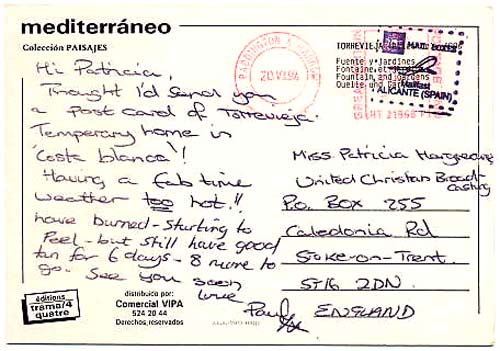 mediterráneo
Colección PAISAJES
Hi Patricia,
Thought I'd send you
a post card of Torrevieja.
Temperary home in
'Costa blanca'!
Having a fab time
weather too hot!!
have burned - starting to
Peel - but still have good
tan for 6 days - 8 more to
go. See you soon
love
Paul
TORREVIEJA
Fuente y Jardines
Fountain and gardens
MAIL BOXES
Mailfast
ALICANTE (SPAIN)
20 VI 94
Miss Patricia Hargreaves
United Christian Broad-
casting
P.O. Box 255
Caledonia Rd
Stoke-on-Trent.
ST16 2DN.
ENGLAND
éditions
trama/4
quatre
distribuido por:
Comercial VIPA
524 20 44
Derechos reservados